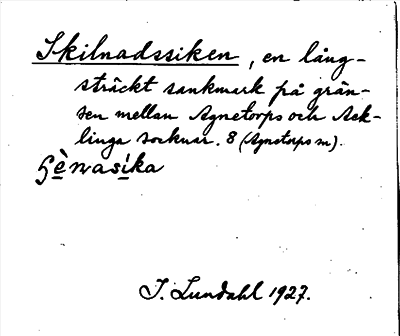 Skilnadssiken, en lång-
sträckt sankmark på grän-
sen mellan Agnetorps och Ack-
linga socknar. 8 (Agnetorps sn).
J. Lundahl 1927.